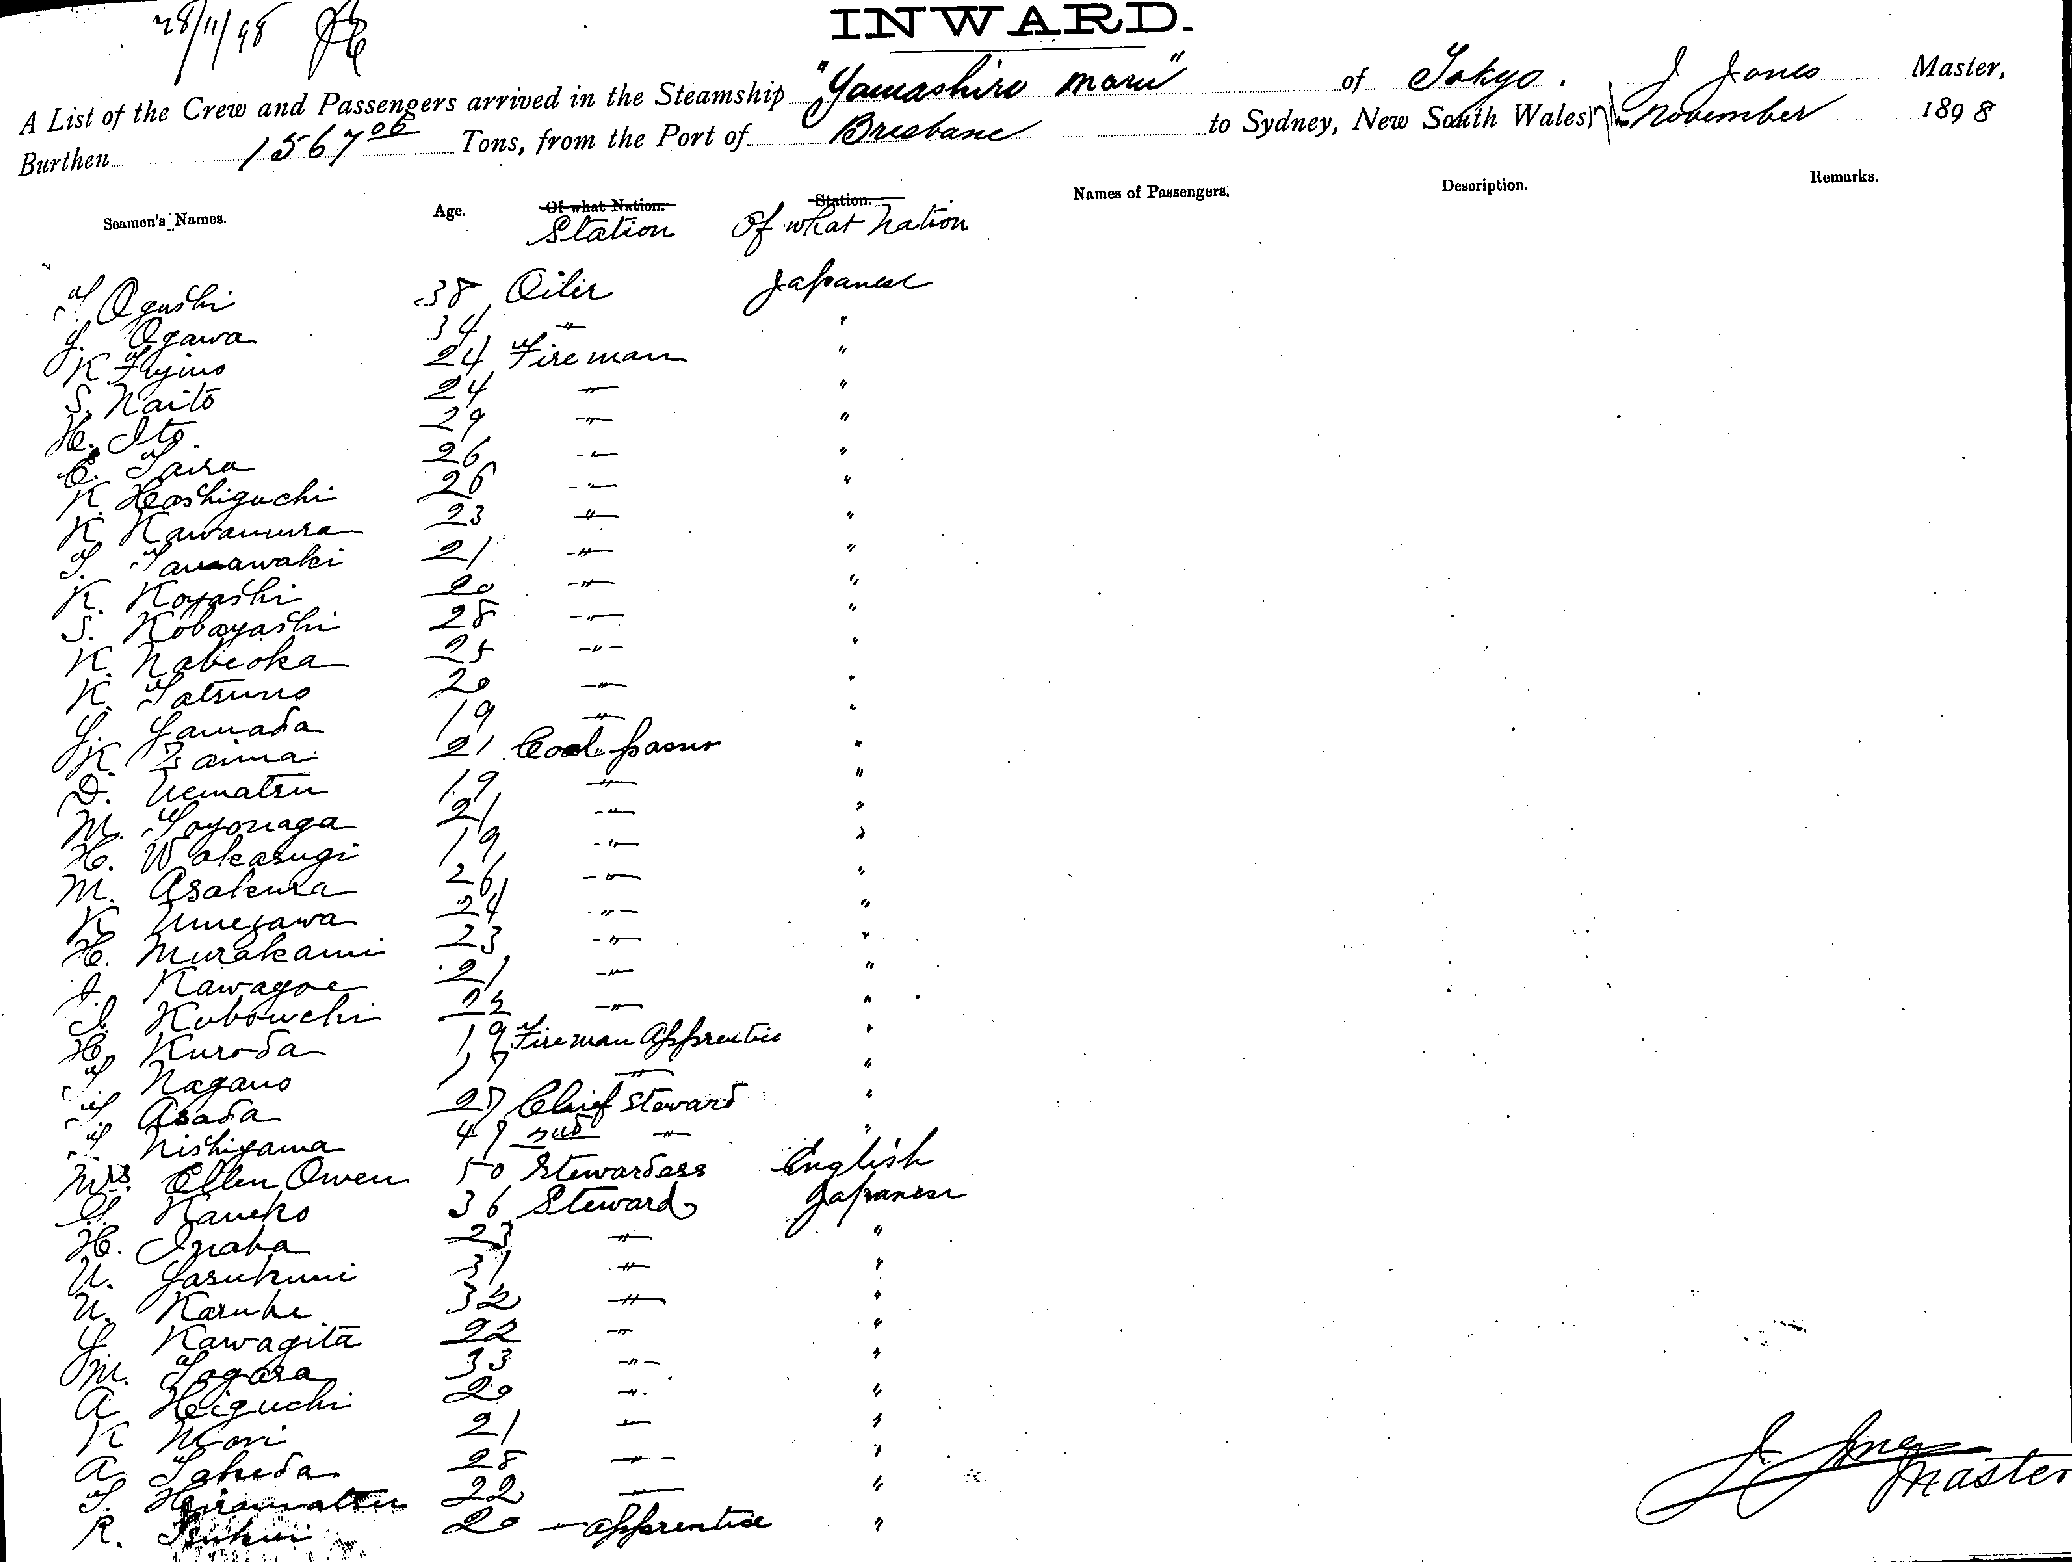 28/11/98
INWARD.
A List of the Crew and Passengers arrived in the Steamship "Yamashiro Maru" of Tokyo. J Jones Master,
Burthen 1567 06 Tons, from the Port of Brisbane to Sydney, New South Wales November 1898
Seamen's Names. Age. Of what Nation. Station. Names of Passengers. Description. Remarks.
Station Of what Nation
T Ogushi 38 Oiler Japanese
Y. Ogawa 34 " "
K Fujino 24 Fireman "
S. Naito 24 " "
H. Ito. 29 " "
E. Taira 26 " "
K. Hashiguchi 26 " "
K Kawamura 23 " "
T. Tamawaki 21 " "
K. Koyashi 20 " "
S. Kobayashi 28 " "
K. Nabeoka 25 " "
K. Tatsuno 20 " "
Y. Yamada 19 " "
K. Zaima 21 Coal-passer "
D. Uematsu 19 " "
M. Toyonaga 21 " "
H. Wakasugi 19 " "
M. Asakura 26 " "
K Umezawa 24 " "
H. Murakami 23 " "
J. Kawagoe 21 " "
I. Kubouchi 22 " "
H. Kuroda 19 Fireman Apprentice "
T. Nagano 17 " "
T. Asada 27 Chief Steward "
T. Nishiyama 47 2nd " "
Mrs. Ellen Owen 50 Stewardess English
Kaneko 36 Steward Japanese
H. Inaba 23 " "
U. Yasukuni 31 " "
U. Karube 32 " "
Y. Kawagita 22 " "
M. Togara 33 " "
A Higuchi 20 " "
K Mori 21 " "
A. Takeda 28 " "
T. Hiramatsu 22 " "
R. 20 - Apprentice "
J. Jones
Master